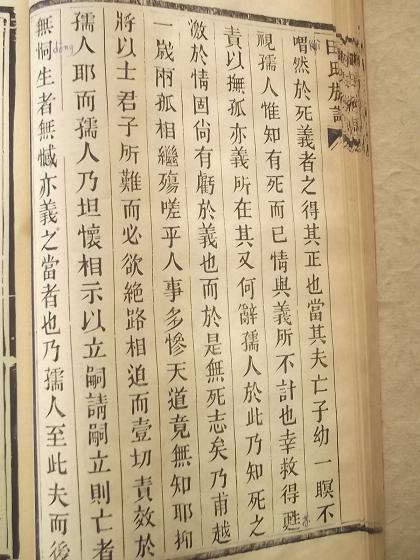 田氏族譜
喟然於死義者之得其正也當其夫亡子幼一瞑不
視孺人惟知有死而已情與義所不計也幸救得甦
責以撫孤亦義所在其又何辭孺人於此乃知死之
激於情固尙有虧於義也而於是無死志矣乃甫越
一歲兩孤相繼殤嗟乎人事多慘天道竟無知耶抑
將以士君子所難而必欲絕路相迫而壹切責效於
孺人耶而孺人乃坦懷相示以立嗣請嗣立則亡者
無恫生者無憾亦義之當者也乃孺人至此夫而後
dòng